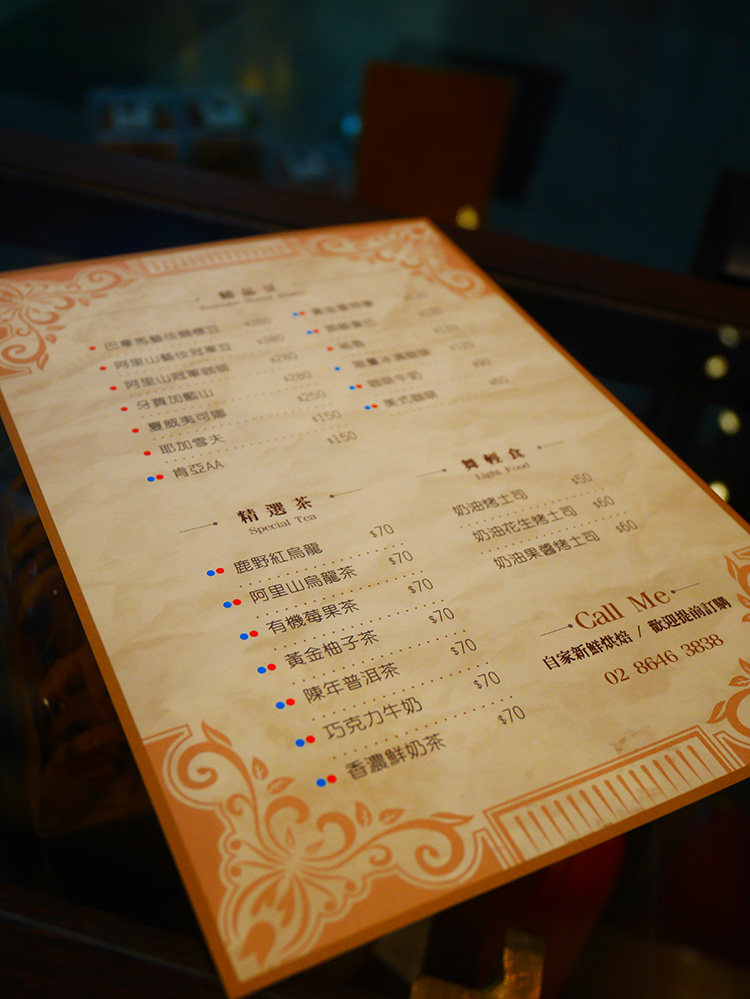 精品豆
巴拿馬藝伎翡翠莊 $380
阿里山藝伎冠軍豆 $380
阿里山冠軍咖啡 $280
牙買加藍山 $280
夏威夷可娜 $250
耶加雪夫 $150
肯亞AA $150
$120
$120
$120
能量冰滴咖啡 $120
咖啡牛奶 $90
美式咖啡 $60
精選茶
Special Tea
鹿野紅烏龍 $70
阿里山烏龍茶 $70
有機莓果茶 $70
黃金柚子茶 $70
陳年普洱茶 $70
巧克力牛奶 $70
香濃鮮奶茶 $70
舞輕食
Light Food
奶油烤土司 $50
奶油花生烤土司 $60
奶油果醬烤土司 $60
Call Me
自家新鮮烘焙 / 歡迎提前訂購
02 8646 3838